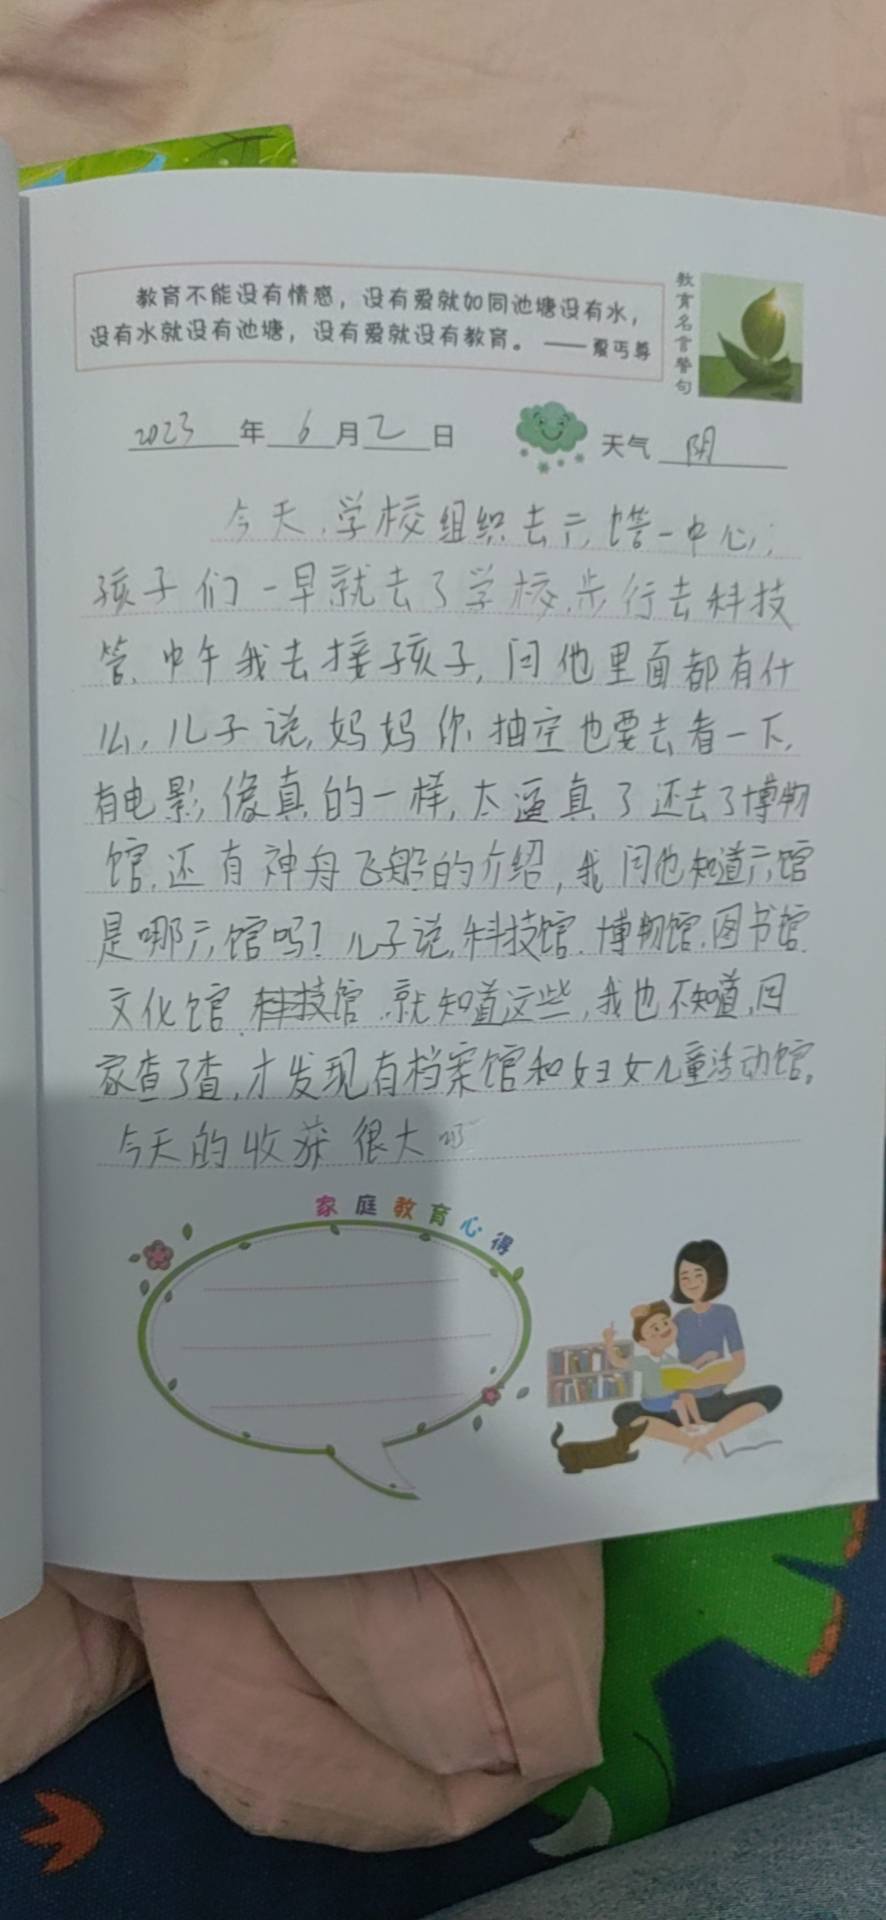 教育不能没有情感，没有爱就如同池塘没有水，
没有水就没有池塘，没有爱就没有教育。 ——夏丏尊
教育名言警句
2023年6月2日
天气 阴
今天,学校组织去六馆一中心,
孩子们一早就去了学校,步行去科技
管,中午我去接孩子,问他里面都有什
么,儿子说,妈妈你抽空也要去看一下,
有电影,像真的一样,太逼真了还去了博物
馆,还有神舟飞船的介绍,我问他知道六馆
是哪六馆吗?儿子说,科技馆.博物馆,图书馆
文化馆.科技馆.就知道这些,我也不知道,回
家查了查,才发现有档案馆和妇女儿童活动馆。
今天的收获很大
家庭教育心得